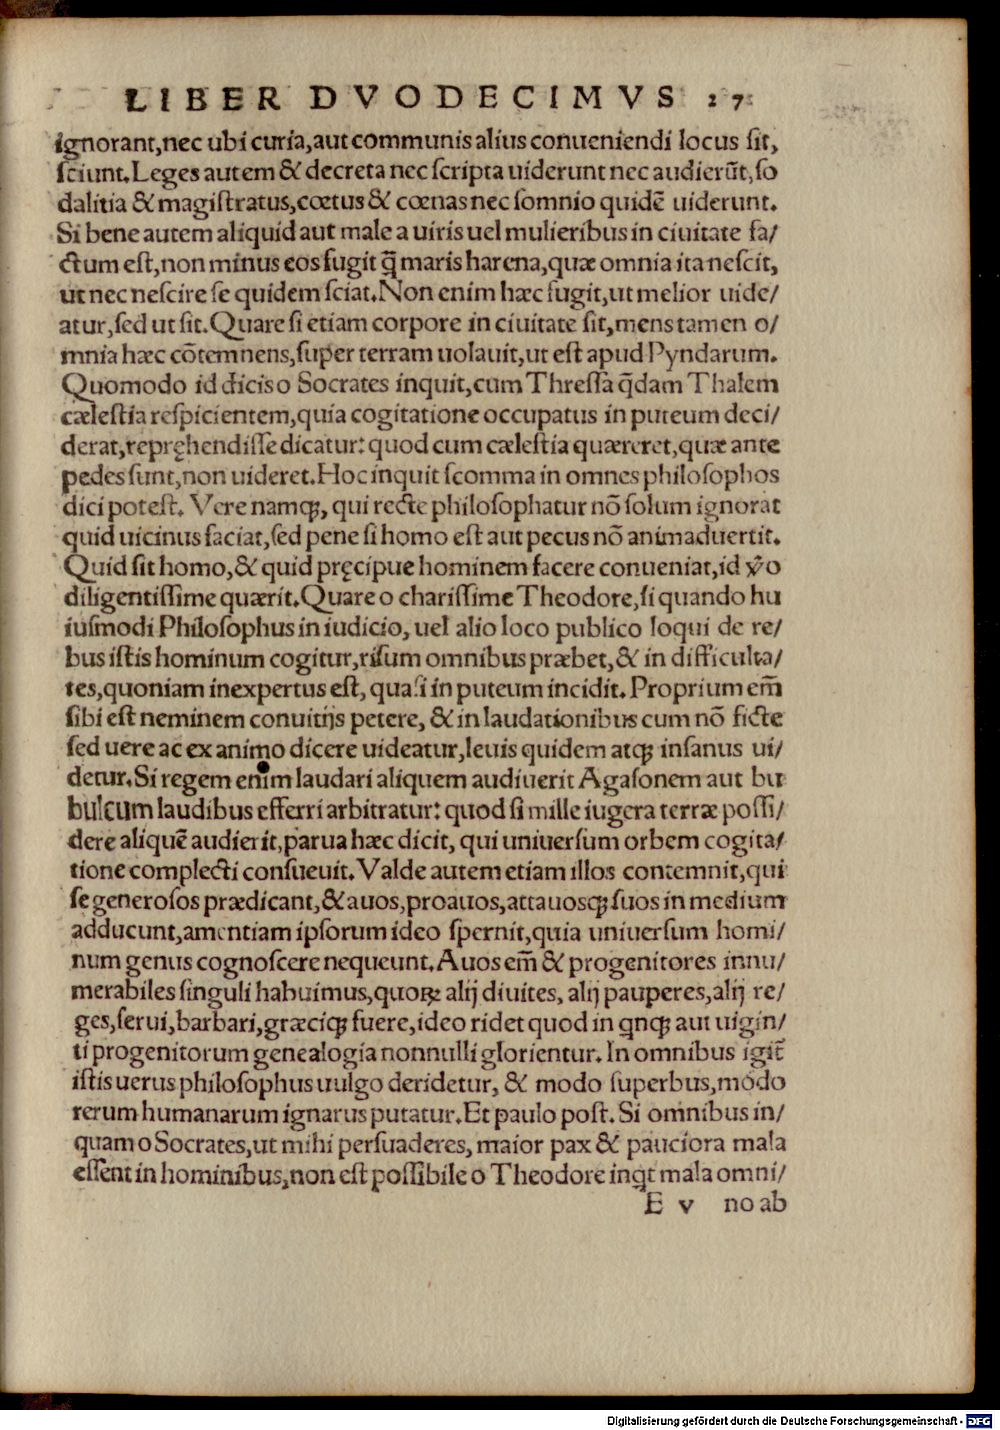 LIBER DVODECIMVS 27
ignorant,nec ubi curia,aut communis alius conueniendi locus sit,
sciunt.Leges autem & decreta nec scripta uiderunt nec audierūt,so
dalitia & magistratus,cœtus & cœnas nec somnio quidē uiderunt.
Si bene autem aliquid aut male a uiris uel mulieribus in ciuitate fa/
ctum est,non minus eos fugit q̃ maris harena,quæ omnia ita nescit,
ut nec nescire se quidem sciat.Non enim hæc fugit,ut melior uide/
atur,sed ut sit.Quare si etiam corpore in ciuitate sit,mens tamen o/
mnia hæc cōtemnens,super terram uolauit,ut est apud Pyndarum.
Quomodo id dicis o Socrates inquit,cum Thressa q̃dam Thalem
cælestia respicientem,quia cogitatione occupatus in puteum deci/
derat,repręhendisse dicatur:quod cum cælestia quæreret,quæ ante
pedes sunt,non uideret.Hoc inquit scomma in omnes philosophos
dici potest. Vere namq;, qui recte philosophatur nō solum ignorat
quid uicinus faciat,sed pene si homo est aut pecus nō animaduertit.
Quid sit homo,& quid pręcipue hominem facere conueniat,id v̊o
diligentissime quærit.Quare o charissime Theodore,si quando hu
iusmodi Philosophus in iudicio, uel alio loco publico loqui de re/
bus istis hominum cogitur,risum omnibus præbet,& in difficulta/
tes,quoniam inexpertus est, quasi in puteum incidit.Proprium em̄
sibi est neminem conuitijs petere, & in laudationibus cum nō ficte
sed uere ac ex animo dicere uideatur,leuis quidem atq; insanus ui/
detur.Si regem enim laudari aliquem audiuerit Agasonem aut bu
bulcum laudibus efferri arbitratur:quod si mille iugera terræ possi/
dere aliquē audierit,parua hæc dicit, qui uniuersum orbem cogita/
tione complecti consueuit.Valde autem etiam illos contemnit,qui
se generosos prædicant,& auos,proauos,attauosq; suos in medium
adducunt,amentiam ipsorum ideo spernit,quia uniuersum homi/
num genus cognoscere nequeunt.Auos em̄ & progenitores innu/
merabiles singuli habuimus,quoꝝ alij diuites, alij pauperes,alij re/
ges,serui,barbari,græciq; fuere,ideo ridet quod in qnq; aut uigin/
ti progenitorum genealogia nonnulli glorientur.In omnibus igit̄
istis uerus philosophus uulgo deridetur, & modo superbus,modo
rerum humanarum ignarus putatur.Et paulo post.Si omnibus in/
quam o Socrates,ut mihi persuaderes, maior pax & pauciora mala
essent in hominibus,non est possibile o Theodore inqt mala omni/
E v no ab
Digitalisierung gefördert durch die Deutsche Forschungsgemeinschaft - DFG